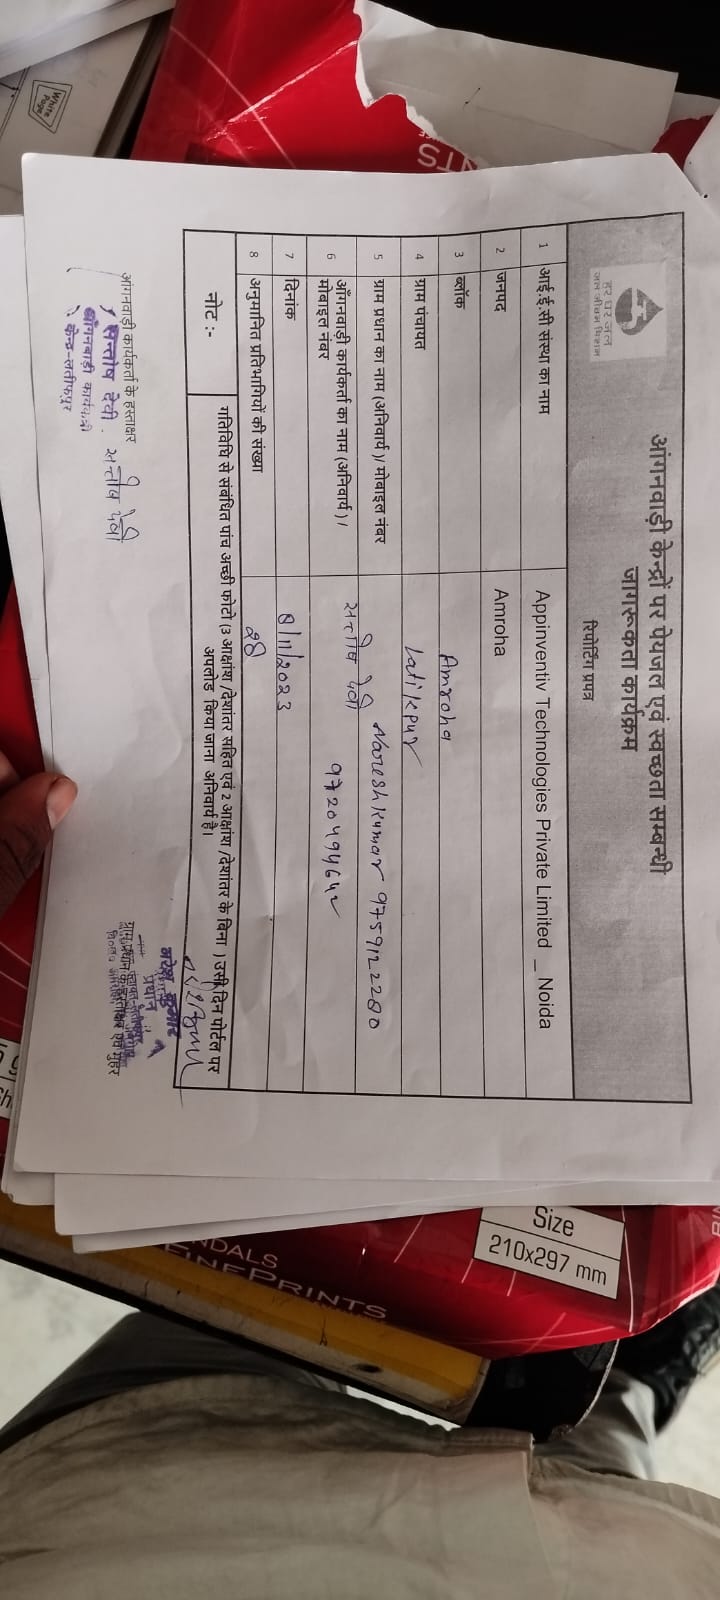 हर घर जल
जल जीवन मिशन
आंगनवाड़ी केन्द्रों पर पेयजल एवं स्वच्छता सम्बन्धी
जागरूकता कार्यक्रम
रिपोर्टिंग प्रपत्र
1 आई.ई.सी संस्था का नाम Appinventiv Technologies Private Limited _ Noida
2 जनपद Amroha
3 ब्लॉक Amroha
4 ग्राम पंचायत Latifpur
5 ग्राम प्रधान का नाम (अनिवार्य)/ मोबाइल नंबर Naresh kumar 9759122280
6 आँगनवाड़ी कार्यकर्ता का नाम (अनिवार्य)/
मोबाइल नंबर
7 दिनांक 8/11/2023
8 अनुमानित प्रतिभागियों की संख्या
नोट :- गतिविधि से संबंधित पांच अच्छी फोटो (3 आक्षांश /देशांतर सहित एवं 2 आक्षांश /देशांतर के बिना ) उसी दिन पोर्टल पर
अपलोड किया जाना अनिवार्य है।
आंगनवाड़ी कार्यकर्ता के हस्ताक्षर
सन्तोष देवी
आँगनबाड़ी कार्यकत्री
केन्द्र-लतीफपुर
नरेश कुमार
प्रधान
White
Page
NDALS
FINEPRINTS
Size
210x297 mm